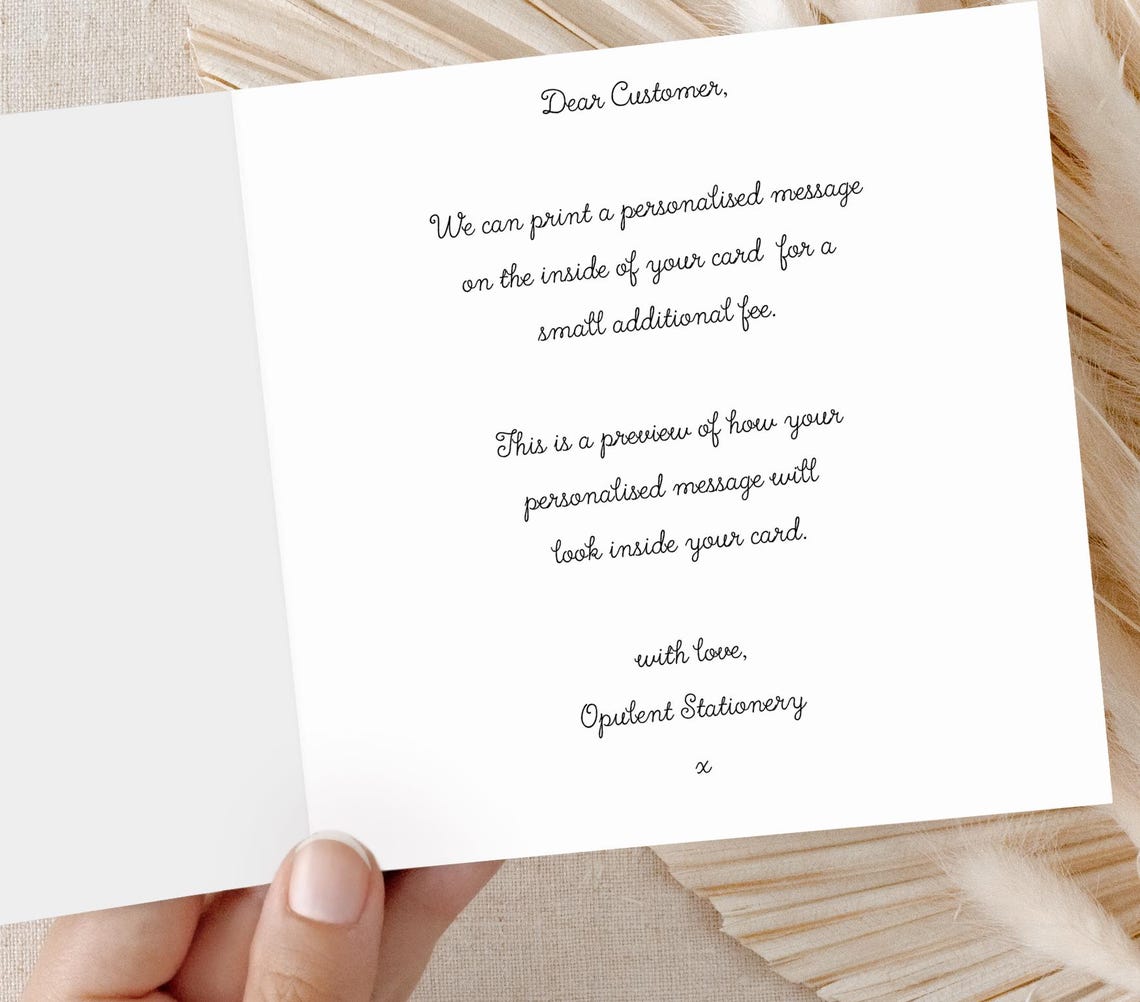 Dear Customer,
We can print a personalised message
on the inside of your card for a
small additional fee.
This is a preview of how your
personalised message will
look inside your card.
with love,
Opulent Stationery
x